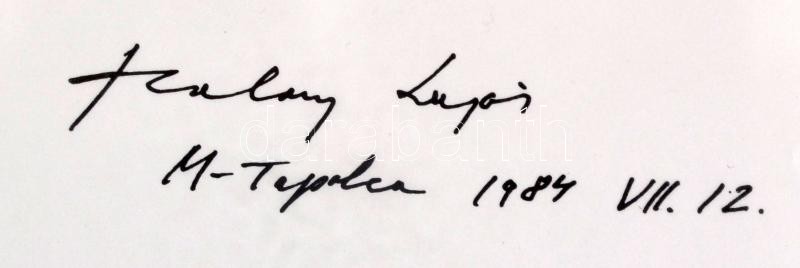 Kalmár Lajos
M-Tapolca 1984 VII. 12.
darabanth